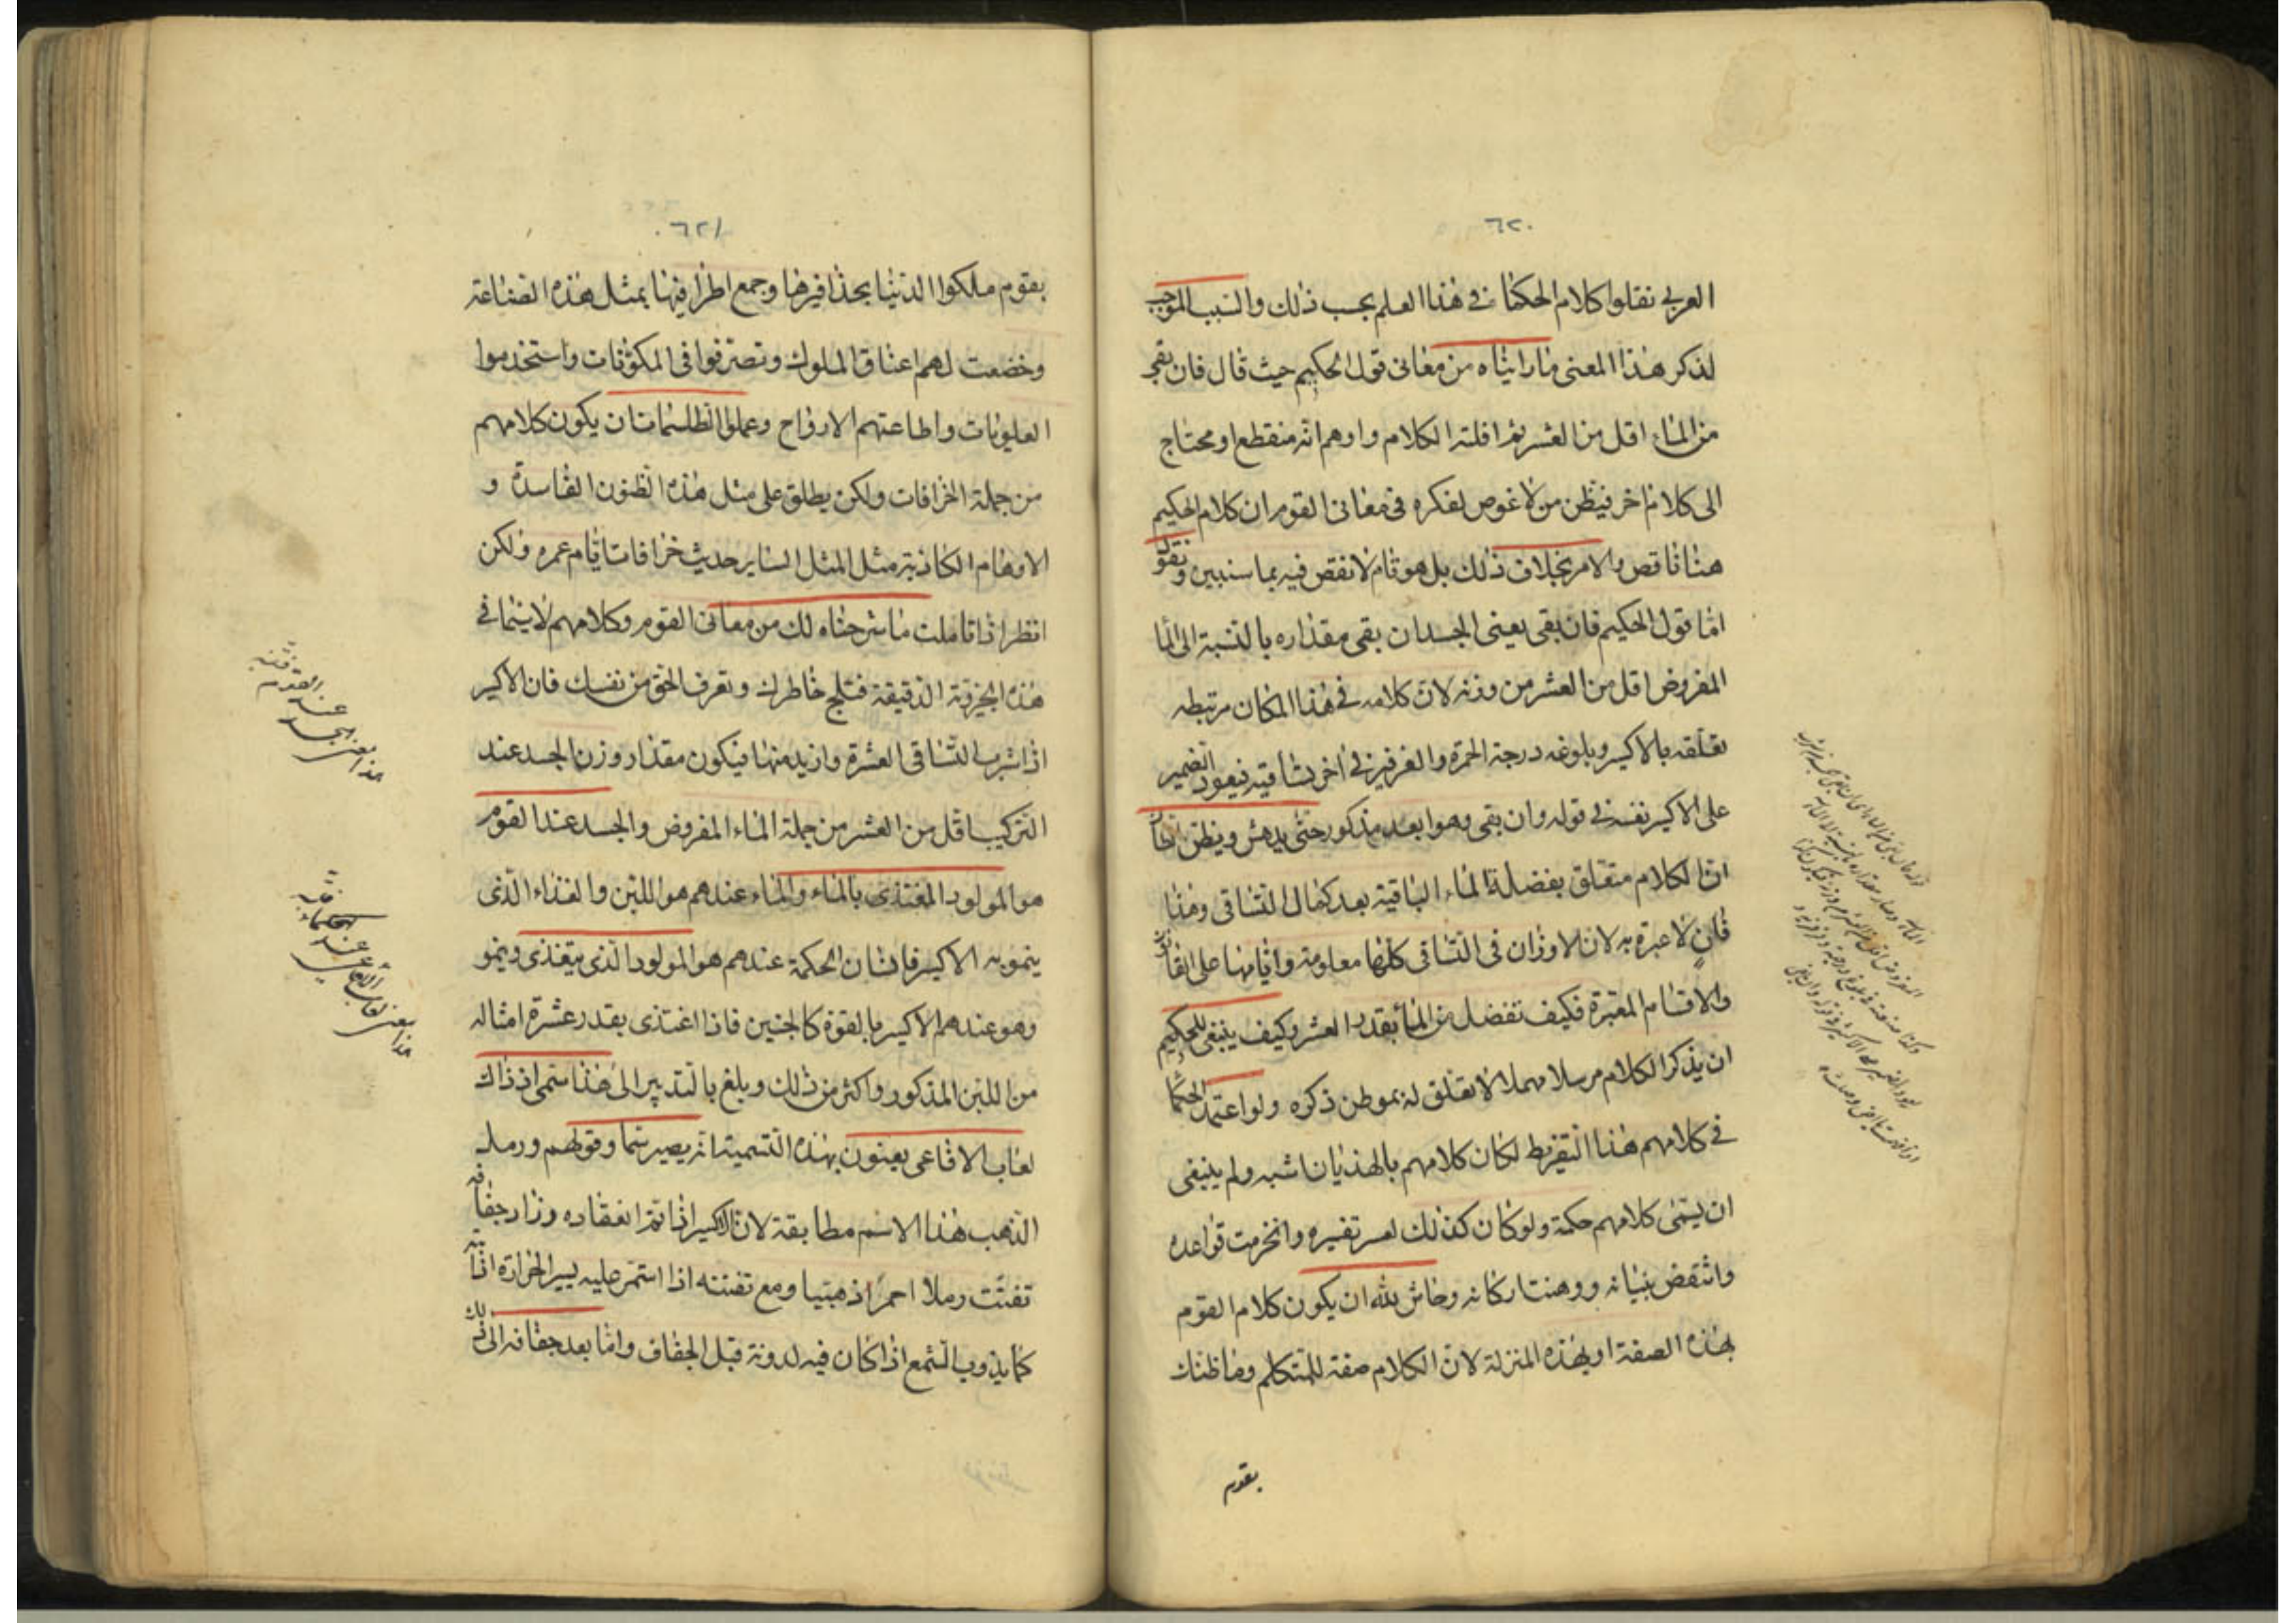 ٦٢٠
العربي نقلوا كلام الحكما في هذا العلم بحسب ذلك والسبب الموجب
لذكر هذا المعنى ما راٮناه من معاني قول الحكيم حيث قال فان بقي
من الماء اقل من العشر ثم افلته الكلام واوهم انه منقطع او محتاج
الى كلام اخر فيظن من لا غوص لفكره في معاني القوم ان كلام الحكيم
هنا ناقص والامر بخلاف ذلك بل هو تام لا نقص فيه بما سنبين ونقول
اما قول الحكيم فان بقي يعني الجسد ان بقي مقداره بالنسبة الى الما
المفروض اقل من العشر من وزنه لان كلامه في هذا المكان مرتبطه
تعلقه بالاكسير وبلوغه درجة الحمرة والفرفير في اخر تساقيه فيعود الضمير
على الاكسير نفسه في قوله وان بقي وهو ابعد مذكور حتى يدهش ويظن
ان الكلام متعلق بفضلة الماء الباقية بعد كمال التساقي وهذا
فان لا عبرة به لان الاوزان في التساقي كلها معلومة واقامها على
والاقسام المعتبرة فكيف تفضل من الما بقدر العشر وكيف ينبغي للحكيم
ان يذكر الكلام مرسلا مهملا لا تعلق له بموطن ذكره ولو اعتمد الحكما
في كلامهم هذا التفريط لكان كلامهم بالهذيان اشبه ولم ينبغي
ان يسمى كلامهم حكمة ولو كان كذلك لعسر تفسيره وانخرمت قواعده
وانتقض بنيانه ووهنت اركانه وحاش لله ان يكون كلام القوم
بهذه الصفة او بهذه المنزلة لان الكلام صفة للمتكلم وما ظنك
بقوم
٦٢١
بقوم ملكوا الدنيا بحذافيرها وجمع اطرافها بمثل هذه الصناعة
وخضعت لهم اعناق الملوك وتصرفوا في المكونات واستخدموا
العلويات واطاعتهم الارواح وعملوا الطلسمات ان يكون كلامهم
من جملة الخرافات ولكن يطلق على مثل هذه الظنون الفاسدة و
الاوهام الكاذبة مثل المثل الساير حديث خرافات يا ام عمره ولكن
انظر اذا تاملت ما شرحناه لك من معاني القوم وكلامهم لا سيما في
هذه الجزئية الدقيقة فتلج خاطرك وتعرف الحق من نفسك فان الاكسير
اذا شرب التساقي العشرة وازيد منها فيكون مقدار وزن الجسد عند
التركيب اقل من العشر من جملة الماء المفروض والجسد عند القوم
هو المولود المغتذي بالماء والماء عندهم هو اللبن والغذاء الذي
ينمو به الاكسير فانسان الحكمة عندهم هو المولود الذي يتغذى وينمو
وهو عندهم الاكسير بالقوة كالجنين فاذا اغتذى بقدر عشرة امثاله
من اللبن المذكور واكثر من ذلك وبلغ بالتدبير الى هذا سمى اذ ذاك
لعاب الافاعي يعنون بهذه التسمية انه يصير سما وقولهم ورمل
الذهب هذا الاسم مطابقة لان الاكسير اذا تم انعقاده وزاد جفافه
تفتت رملا احمرا ذهبيا ومع تفتته اذا استمر عليه يسير الحرارة اذابته
كما يذوب الشمع اذا كان فيه لدونة قبل الجفاف واما بعد جفافه الى ذلك
هذا معنى الجسد عند القوم فتنبه
هذا معنى لعاب الافاعي عند الحكماء